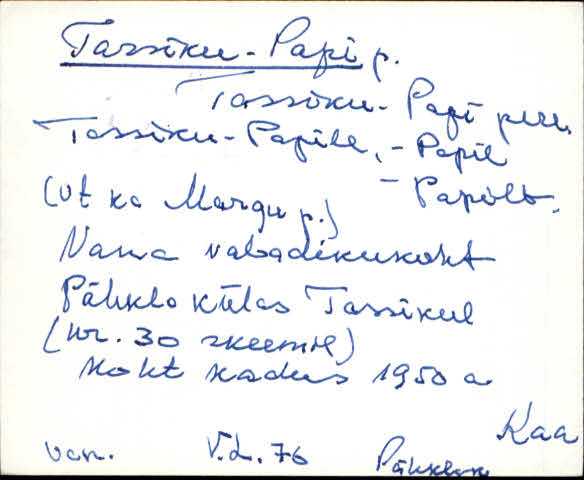 Tassiku-Papi p.
Tassiku-Papi pere
Tassiku-Papile, -Papil
-Papilt.
(vt ka Margu p.)
Vana vabadikukoht
Pähkla külas Tassikul
(nr. 30 skeemil)
Koht kadus 1950 a
Kaa
van. V.L. 76 Pähkla